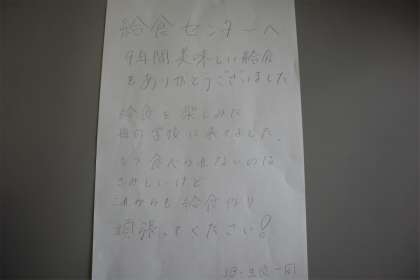 給食センターへ
9年間美味しい給食
をありがとうございました
給食を楽しみに
毎日学校に来てました。
もう食べられないのは
さみしいけど
これからも給食作り
頑張ってください!